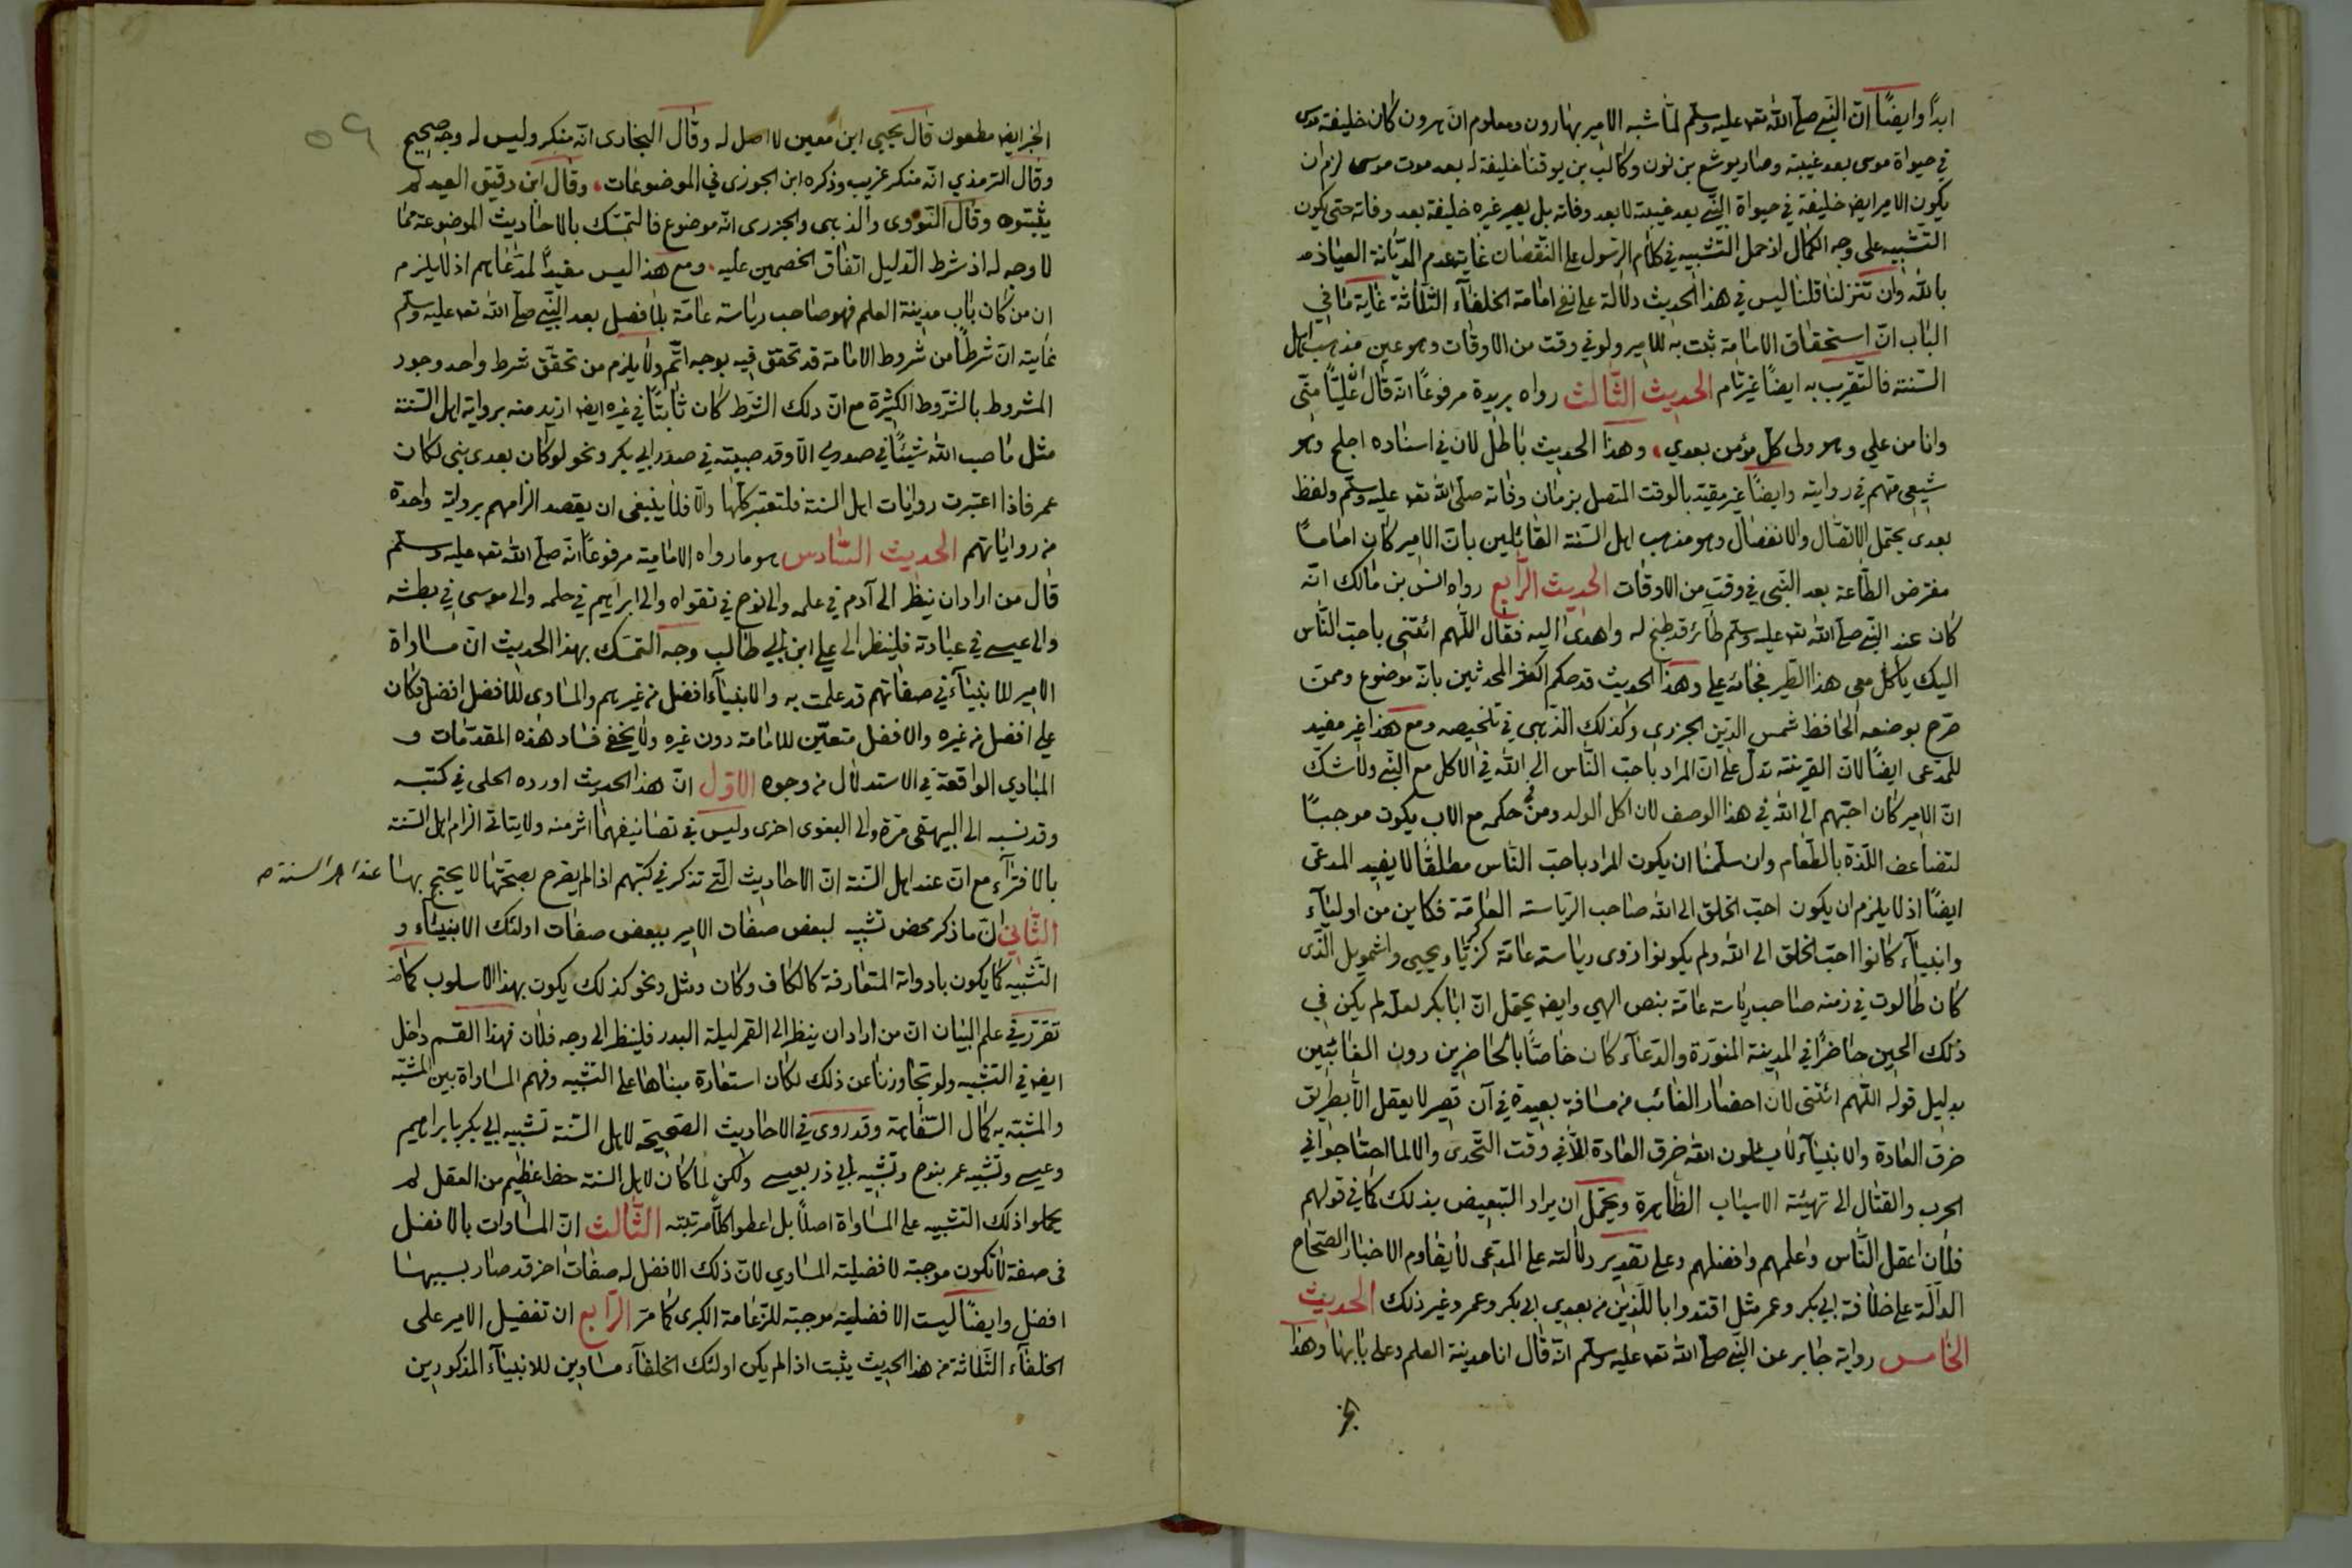 ابدًا وايضًا انّ النّبي صلّى الله تعـ عليه وسلّم لمّا شبه الامير بهارون ومعلوم انّ هرون كان خليفة موسى
في حيواة موسى بعد غيبته وصار يوشع بن نون وكالب بن يوقنا خليفة له بعد موت موسى لزم ان
يكون الامير ايضـ خليفة في حيواة النّبي بعد غيبته لا بعد وفاته بل يصير غيره خليفة بعد وفاته حتى يكون
التشبيه على وجه الكمال اذ حمل التشبيه في كلام الرسول على النّقصان غاية عدم الديّانة العياذ
بالله وان تنزلنا قلنا ليس في هذا الحديث دلالة على نفي امامة الخلفآء الثلاثة غاية ما في
الباب انّ استحقاق الامامة ثبت به للامير ولو في وقت من الاوقات وهو عين مذهب اهل
السّنة فالتّقريب به ايضًا غير تام الحديث الثّالث رواه بريدة مرفوعًا انّه قال انّ عليًّا منّي
وانا من علي وهو ولى كلّ مؤمن بعدي، وهذا الحديث باطل لان في اسناده اجلح وهو
شيعي متهم في روايته وايضًا غير مقيّد بالوقت المتصل بزمان وفاته صلّى الله تعـ عليه وسلّم ولفظ
بعدى يحتمل الاتصال والانفصال وهو مذهب اهل السّنة القائلين بانّ الامير كان امامًا
مفترض الطّاعة بعد النّبى في وقتٍ من الاوقات الحديث الرّابع رواه انس بن مالك انّه
كان عند النّبي صلّى الله تعـ عليه وسلّم طائر قد طبخ له واهدى اليه فقال اللّهم ائتنى باحبّ النّاس
اليك يأكل معى هذا الطّير فجائه على وهذا الحديث قد حكم اكثر المحدثين بانّه موضوع وممن
صرّح بوضعه الحافظ شمس الدّين الجزرى وكذلك الذّهبى في تلخيصه ومع هذا غير مفيد
للمدّعى ايضًا لانّ القرينة تدلّ على انّ المراد باحبّ النّاس الى الله في الاكل مع النّبي ولا شك
انّ الامير كان احبّهم الى الله في هذا الوصف لان اكل الولد ومن في حكمه مع الاب يكون موجبًا
لتضاعف اللّذة بالطّعام وان سلّمنا ان يكون المراد باحبّ النّاس مطلقًا لا يفيد المدعّى
ايضًا اذ لا يلزم ان يكون احبّ الخلق الى الله صاحب الرّياسة العامّة فكاين من اوليآء
وانبيآء كانوا احبّ الخلق الى الله ولم يكونوا ذوى رياسة عامّة كزكريّا ويحيى واشمويل الّذى
كان طالوت في زمنه صاحب رياسة عامّة بنص الهي وايضـ يحتمل انّ ابا بكر لعلّه لم يكن في
ذلك الحين حاضرًا في المدينة المنوّرة والدّعآء كان خاصًّا بالحاضرين دون الغائبين
بدليل قوله اللّهم ائتنى لانّ احضار الغائب من مسافة بعيدة في آن قصير لا يعقل الّا بطريق
خرق العادة والانبيآء لا يسئلون الله خرق العادة الّا في وقت التّحدى والا لما احتاجوا في
الحرب والقتال الى تهيئة الاسباب الظّاهرة ويحتمل ان يراد التبعيض بذلك كما في قولهم
فلان اعقل النّاس واعلمهم وافضلهم وعلى تقدير دلالته على المدّعى لا يقاوم الاخبار الصّحاح
الدالّة على خلافة ابي بكر وعمر مثل اقتدوا باللّذين من بعدي ابى بكر وعمر وغير ذلك الحديث
الخامس رواية جابر عن النّبي صلّى الله تعـ عليه وسلّم انّه قال انا مدينة العلم وعلى بابها وهذا
الخبر
٥٩
الخبر ايضـ مطعون قال يحيى ابن معين لا اصل له وقال البخارى انّه منكر وليس له وجه صحيح
وقال الترمذي انّه منكر غريب وذكره ابن الجوزى في الموضوعات، وقال ابن دقيق العيد لم
يثبتوه وقال النّووى والذهبى والجزرى انّه موضوع فالتمسّك بالاحاديث الموضوعة ممّا
لا وجه له اذ شرط الدّليل اتفاق الخصمين عليه، ومع هذا ليس مفيدًا لمدّعاهم اذ لا يلزم
ان من كان باب مدينة العلم فهو صاحب رياسة عامّة بلا فصل بعد النّبي صلّى الله تعـ عليه وسلّم
غايته انّ شرطًا من شروط الامامة قد تحقق فيه بوجه اتّم ولا يلزم من تحقّق شرط واحد وجود
المشروط بالشّروط الكثيرة مع انّ ذلك الشّرط كان ثابتًا في غيره ايضـ ازيد منه برواية اهل السّنة
مثل ما صب الله شيئًا في صدري الّا وقد صببته في صدر ابي بكر ونحو لو كان بعدى نبى لكان
عمر فاذا اعتبرت روايات اهل السنة فلتعتبر كلّها والّا فلا ينبغى ان يقصد الزامهم برواية واحدة
من رواياتهم الحديث السّادس هو ما رواه الامامية مرفوعًا انّه صلّى الله تعـ عليه وسلّم
قال من اراد ان ينظر الى آدم في علمه والى نوح في تقواه والى ابراهيم في حلمه والى موسى في بطشه
والى عيسى في عبادته فلينظر الى علي ابن ابي طالب وجه التمسّك بهذا الحديث انّ مساواة
الامير للانبيآء في صفاتهم قد علمت به والانبيآء افضل من غيرهم والمساوى للافضل افضل فكان
علي افضل من غيره والافضل متعيّن للامامة دون غيره ولا يخفى فساد هذه المقدّمات و
المبادي الواقعة في الاستدلال من وجوه الاوّل انّ هذا الحديث اورده الحلى في كتبه
وقد نسبه الى البيهقى مرّة والى البغوى اخرى وليس في تصانيفهما اثر منه ولا يتأتى الزام اهل السّنة
بالافترآء مع انّ عند اهل السّنة انّ الاحاديث الّتي تذكر في كتبهم اذا لم يصرح بصحّتها لا يحتج بها عند اهل السنة صـ
الثّاني انّ ما ذكر محض تشبيه لبعض صفات الامير ببعض صفات اولئك الانبيآء و
التّشبيه كما يكون بادواته المتعارفة كالكاف وكان ومثل ونحو كذلك يكون بهذا الاسلوب كما
تقرّر في علم البيان انّ من اراد ان ينظر الى القمر ليلة البدر فلينظر الى وجه فلان فهذا القسم داخل
ايضـ في التشبيه ولو تجاوزنا عن ذلك لكان استعارة مبناها على التشبيه وفهم المساواة بين المشبّه
والمشبّه به كمال السّفاهة وقد روى في الاحاديث الصحيحة لاهل السّنة تشبيه ابي بكر بابراهيم
وعيسى وتشبيه عمر بنوح وتشبيه ابي ذر بعيسى ولكن لمّا كان لاهل السنة حظ عظيم من العقل لم
يحملوا ذلك التشبيه على المساواة اصلًا بل اعطوا كلّا مرتبته الثّالث انّ المساوات بالافضل
فى صفة لا تكون موجبة لافضلية المساوي لانّ ذلك الافضل له صفات اخر قد صار بسببها
افضل وايضًا ليست الافضلية موجبة للزّعامة الكبرى كما مرّ الرّابع ان تفضيل الامير على
الخلفآء الثّلاثة من هذا الحديث يثبت اذا لم يكن اولئك الخلفآء مساوين للانبيآء المذكورين